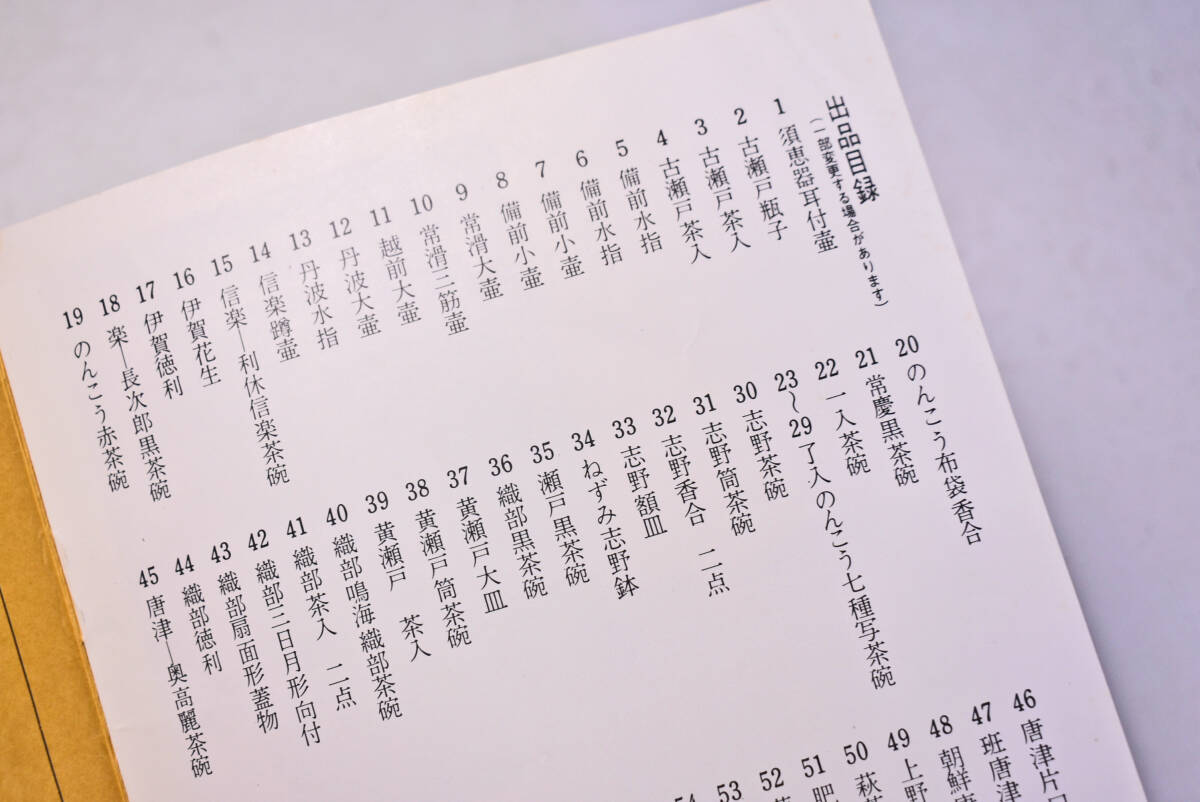 出品目録
(一部変更する場合があります)
1 須恵器耳付壷
2 古瀬戸瓶子
3 古瀬戸茶入
4 古瀬戸茶入
5 備前水指
6 備前水指
7 備前小壷
8 備前小壷
9 常滑大壷
10 常滑三筋壷
11 越前大壷
12 丹波大壷
13 丹波水指
14 信楽蹲壷
15 信楽―利休信楽茶碗
16 伊賀花生
17 伊賀徳利
18 楽―長次郎黒茶碗
19 のんこう赤茶碗
20 のんこう布袋香合
21 常慶黒茶碗
22 一入茶碗
23〜29 了入のんこう七種写茶碗
30 志野茶碗
31 志野筒茶碗
32 志野香合 二点
33 志野額皿
34 ねずみ志野鉢
35 瀬戸黒茶碗
36 織部黒茶碗
37 黄瀬戸大皿
38 黄瀬戸筒茶碗
39 黄瀬戸 茶入
40 織部鳴海織部茶碗
41 織部茶入 二点
42 織部三日月形向付
43 織部扇面形蓋物
44 織部徳利
45 唐津―奥高麗茶碗
46 唐津片口
47 斑唐津
48 朝鮮唐
49 上野
50 萩
51 肥
52
53
54